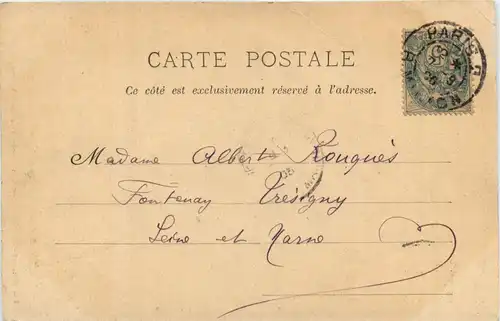 CARTE POSTALE
Ce côté est exclusivement réservé à l'adresse.
PARIS
Madame Albert Rouquès
Fontenay Trésigny
Seine et Marne